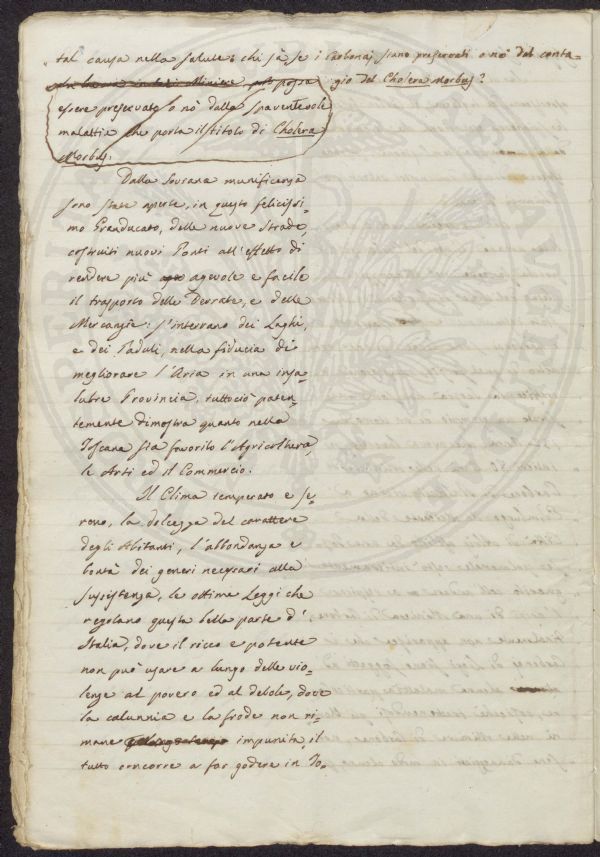 tal causa nella salute: chi sà se i Carbonaj siano preservati o nò dal conta=
possa gio del Cholera Morbus?
essere preservato o nò dalla spaventevole
malattia che porta il titolo di Cholera
Morbus.
Dalla Sovrana munificenza
sono state aperte, in questo felicissi=
mo Granducato, delle nuove strade,
costruiti nuovi Ponti all'effetto di
rendere più agevole e facile
il trasporto delle Derrate, e delle
Mercanzie: s'interrano dei Laghi,
e dei Paduli, nella fiducia di
megliorare l'Aria in una insa=
lubre Provincia, tuttociò paten=
temente dimostra quanto nella
Toscana sia favorito l'Agricoltura,
le Arti ed il Commercio.
Il Clima temperato e se=
reno, la dolcezza del carattere
degli Abitanti, l'abbondanza e
bontà dei generi necessari alla
sussistenza, le ottime Leggi che
regolano questa bella parte d'
Italia, dove il ricco e potente
non può usare a lungo delle vio=
lenze al povero ed al debole, dove
la calunnia e la frode non ri=
mane impunita, il
tutto concorre a far godere in To=